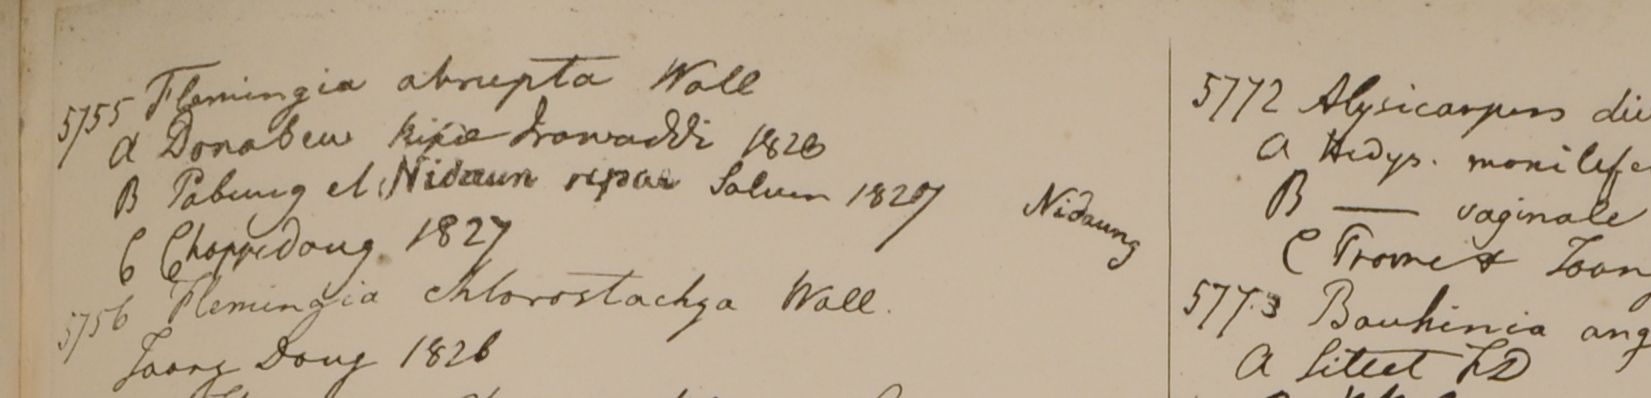 5755 Flemingia abrupta Wall
A Donabew ripae Irawaddi 1826
B Pabung et Nidaun ripae Saluen 1827 Nidaung
C Choppedong 1827
5756 Flemingia chlorostachya Wall.
Toong Dong 1826
5772 Alysicarpus
A Hedys. monilife
B — vaginale
C Prome & Toon
5773 Bauhinia ang
A Sillet FD